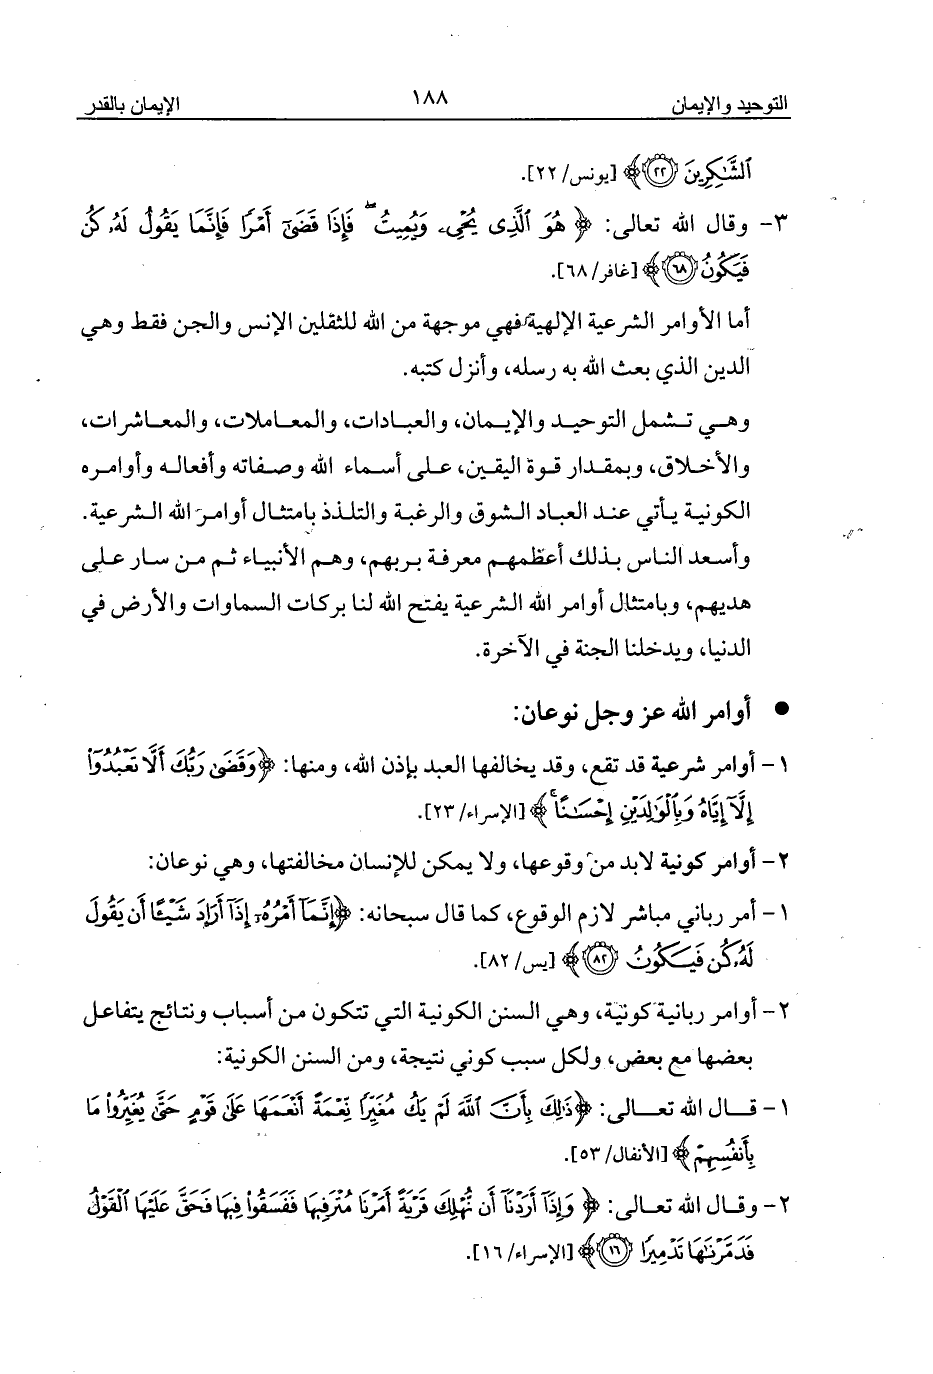 التوحيد والإيمان ١٨٨ الإيمان بالقدر
ٱلشَّٰكِرِينَ ﴿٢٢﴾ ﴾ [يونس/ ٢٢].
٣- وقال الله تعالى: ﴿ هُوَ ٱلَّذِى يُحْىِۦ وَيُمِيتُ ۖ فَإِذَا قَضَىٰٓ أَمْرًا فَإِنَّمَا يَقُولُ لَهُۥ كُن
فَيَكُونُ ﴿٦٨﴾ ﴾ [غافر/ ٦٨].
أما الأوامر الشرعية الإلهية فهي موجهة من الله للثقلين الإنس والجن فقط وهي
الدين الذي بعث الله به رسله، وأنزل كتبه.
وهي تشمل التوحيد والإيمان، والعبادات، والمعاملات، والمعاشرات،
والأخلاق، وبمقدار قوة اليقين، على أسماء الله وصفاته وأفعاله وأوامره
الكونية يأتي عند العباد الشوق والرغبة والتلذذ بامتثال أوامر الله الشرعية.
وأسعد الناس بذلك أعظمهم معرفة بربهم، وهم الأنبياء ثم من سار على
هديهم، وبامتثال أوامر الله الشرعية يفتح الله لنا بركات السماوات والأرض في
الدنيا، ويدخلنا الجنة في الآخرة.
● أوامر الله عز وجل نوعان:
١- أوامر شرعية قد تقع، وقد يخالفها العبد بإذن الله، ومنها: ﴿وَقَضَىٰ رَبُّكَ أَلَّا تَعْبُدُوٓا۟
إِلَّآ إِيَّاهُ وَبِٱلْوَٰلِدَيْنِ إِحْسَٰنًا ۚ ﴾ [الإسراء/ ٢٣].
٢- أوامر كونية لابد من وقوعها، ولا يمكن للإنسان مخالفتها، وهي نوعان:
١- أمر رباني مباشر لازم الوقوع، كما قال سبحانه: ﴿إِنَّمَآ أَمْرُهُۥٓ إِذَآ أَرَادَ شَيْـًٔا أَن يَقُولَ
لَهُۥ كُن فَيَكُونُ ﴿٨٢﴾ ﴾ [يس/ ٨٢].
٢- أوامر ربانية كونية، وهي السنن الكونية التي تتكون من أسباب ونتائج يتفاعل
بعضها مع بعض، ولكل سبب كوني نتيجة، ومن السنن الكونية:
١- قال الله تعالى: ﴿ذَٰلِكَ بِأَنَّ ٱللَّهَ لَمْ يَكُ مُغَيِّرًا نِّعْمَةً أَنْعَمَهَا عَلَىٰ قَوْمٍ حَتَّىٰ يُغَيِّرُوا۟ مَا
بِأَنفُسِهِمْ ﴾ [الأنفال/ ٥٣].
٢- وقال الله تعالى: ﴿ وَإِذَآ أَرَدْنَآ أَن نُّهْلِكَ قَرْيَةً أَمَرْنَا مُتْرَفِيهَا فَفَسَقُوا۟ فِيهَا فَحَقَّ عَلَيْهَا ٱلْقَوْلُ
فَدَمَّرْنَٰهَا تَدْمِيرًا ﴿١٦﴾ ﴾ [الإسراء/ ١٦].